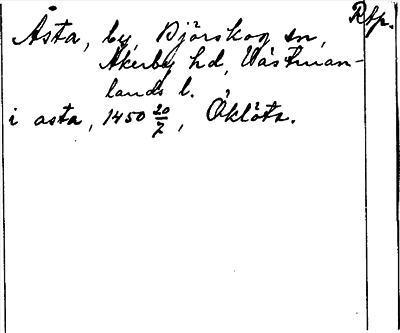 Rsp.
Åsta, by, Björskog sn,
Åkerbo hd, Västman-
lands l.
i asta, 1450 20/7, Öklöta.